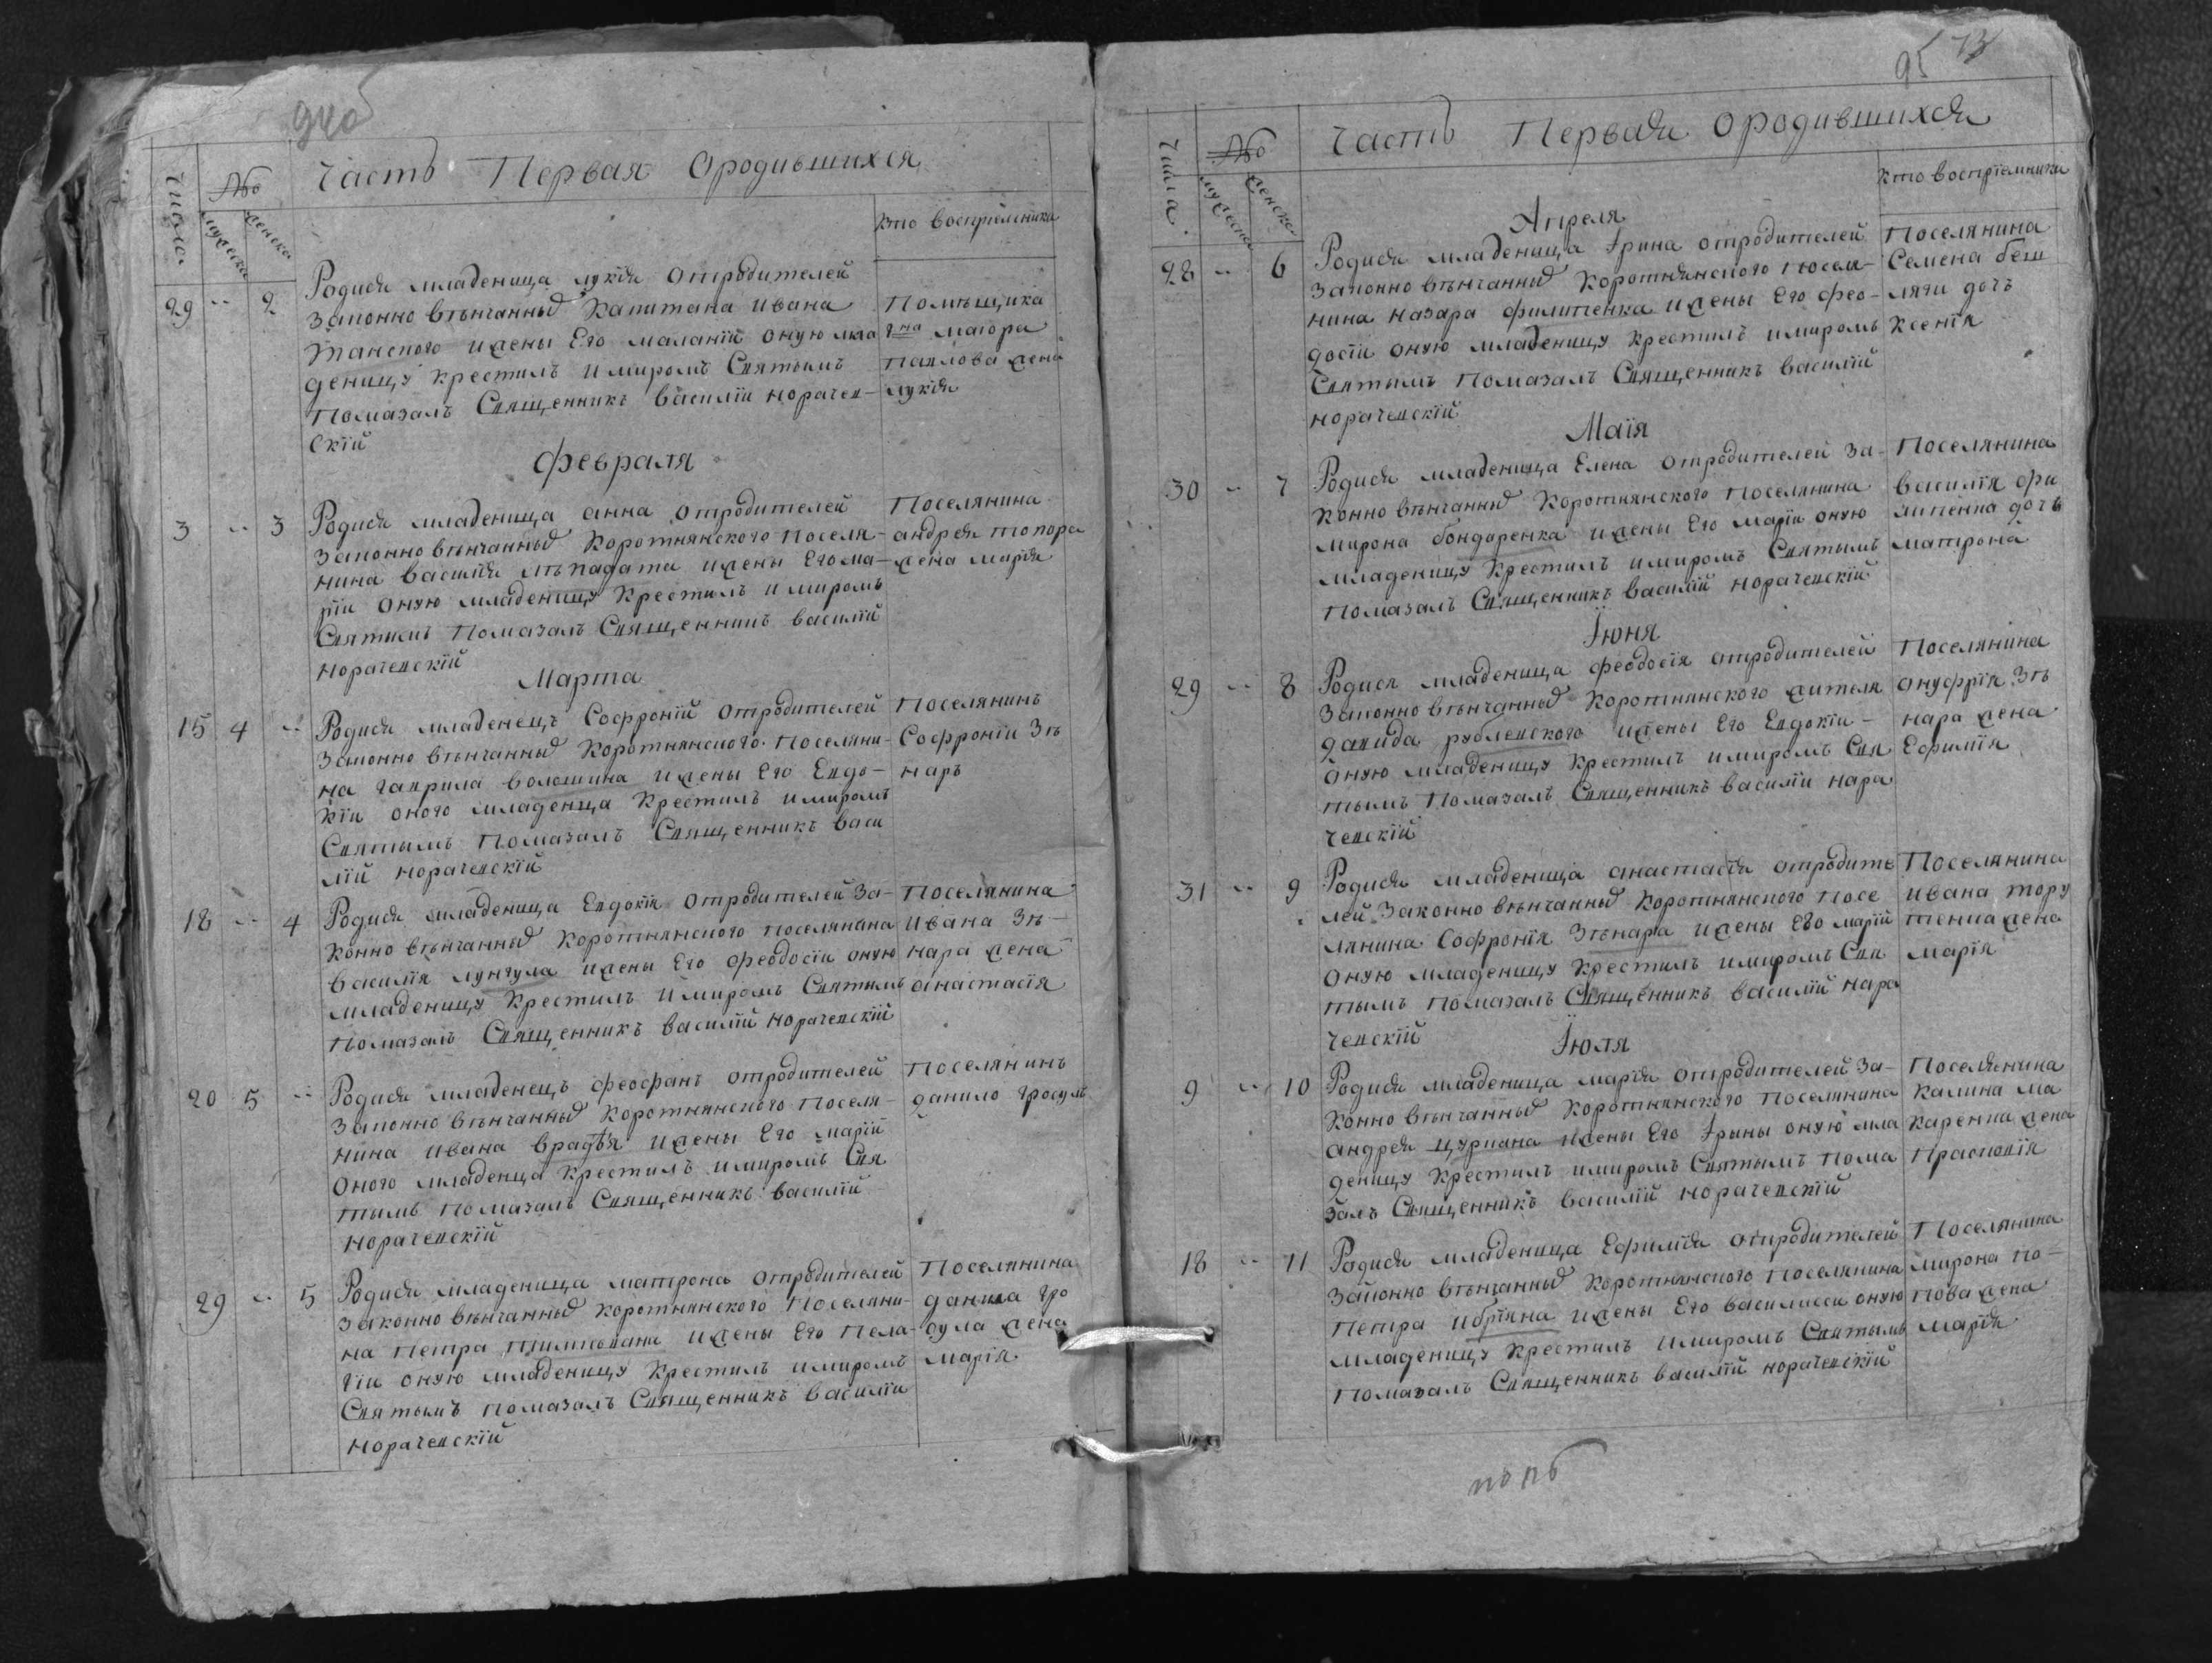 94 об
Часть Первая Ородившихся
Число.
№о
мужеска
женска
Кто воспріемники
29 -- 2
Родися младеница лукія отродителей
Законно вѣнчанныхъ Капитана ивана
ижены Его маланіи оную мла
деницу крестилъ имиромъ Святымъ
Помазалъ Священникъ василіи норачев-
скій
Помѣщика
маіора
павлова жена
лукія
Февраля
3 -- 3
Родися младеница анна отродителей
Законно вѣнчанныхъ Коротнянского поселя-
нина василія лѣпадата ижены Егома-
ріи оную младеницу Крестилъ имиромъ
Святымъ Помазалъ Священникъ василій
норачевскій
Поселянина
андрея топора
жена марія
Марта
15 4 --
Родися младенецъ Софроній отродителей
Законно вѣнчанныхъ Коротнянского поселяни-
на гаврила волошина ижены Его Евдо-
кіи оного младенца Крестилъ имиромъ
Святымъ Помазалъ Священникъ васи
лій норачевскій
Поселянинъ
Софроніи Зѣ
наръ
18 -- 4
Родися младеница Евдокія отродителей За-
конно вѣнчанныхъ Коротнянского поселянина
василія лунгула ижены Его феодосіи оную
младеницу Крестилъ имиромъ Святымъ
помазалъ Священникъ василій норачевскій
Поселянина
ивана Зѣ-
нара жена
анастасія
20 5 --
Родися младенецъ феофанъ отродителей
Законно вѣнчанныхъ Коротнянского поселя-
нина ивана врадѣя ижены Его маріи
оного младенца Крестилъ имиромъ Свя
тымъ помазалъ Священникъ василій
норачевскій
Поселянинъ
данило гросулъ
29 -- 5
Родися младеница матрона отродителей
Законно вѣнчанныхъ Коротнянского Поселяни-
на Петра ижены Его Пела-
гіи оную младеницу Крестилъ имиромъ
Святымъ помазалъ Священникъ василіи
норачевскій
Поселянина
данила гро
сула жена
марія
95 73
Часть Первая Ородившихся
Числа.
№о
мужеска
женска
Кто воспріемники
Апреля
28 -- 6
Родися младеница Ірина отродителей
Законно вѣнчанныхъ Коротнянского Поселя-
нина назара филипенка ижены Его фео-
досіи оную младеницу Крестилъ имиромъ
Святымъ Помазалъ Священникъ василій
норачевскій
Поселянина
Семена беш
ляги дочъ
Ксенія
Маія
30 -- 7
Родися младеница Елена отродителей За-
конно вѣнчанныхъ Коротнянского поселянина
мирона бондаренка ижены Его маріи оную
младеницу Крестилъ имиромъ Святымъ
помазалъ Священникъ василій норачевскій
Поселянина
василія фи
липенка дочъ
матрона
Іюня
29 -- 8
Родися младеница феодосія отродителей
Законно вѣнчанныхъ Коротнянского жителя
давида рублевского ижены Его Евдокіи-
оную младеницу Крестилъ имиромъ Свя
тымъ Помазалъ Священникъ василіи нара
чевскій
Поселянина
онуфрія Зѣ
нара жена
Ефимія
31 -- 9
Родися младеница анастасія отродите
лей Законно вѣнчанныхъ Коротнянского посе
лянина Софронія Зѣнара ижены Его маріи
оную младеницу Крестилъ имиромъ Свя
тымъ помазалъ Священникъ василій нара
чевскій
Поселянина
ивана тору
тенка жена
марія
Іюля
9 -- 10
Родися младеница марія отродителей За-
конно вѣнчанныхъ Коротнянского поселянина
андрея цуркана ижены Его Ірины оную мла
деницу Крестилъ имиромъ Святымъ пома
залъ Священникъ василій норачевскій
Поселянина
Калина ма
каренка жена
Прасковія
18 -- 11
Родися младеница Ефимія отродителей
Законно вѣнчанныхъ Коротнянского поселянина
Петра ижены Его василисси оную
младеницу Крестилъ имиромъ Святымъ
Помазалъ Священникъ василій норачевскій
Поселянина
мирона по-
пова жена
марія